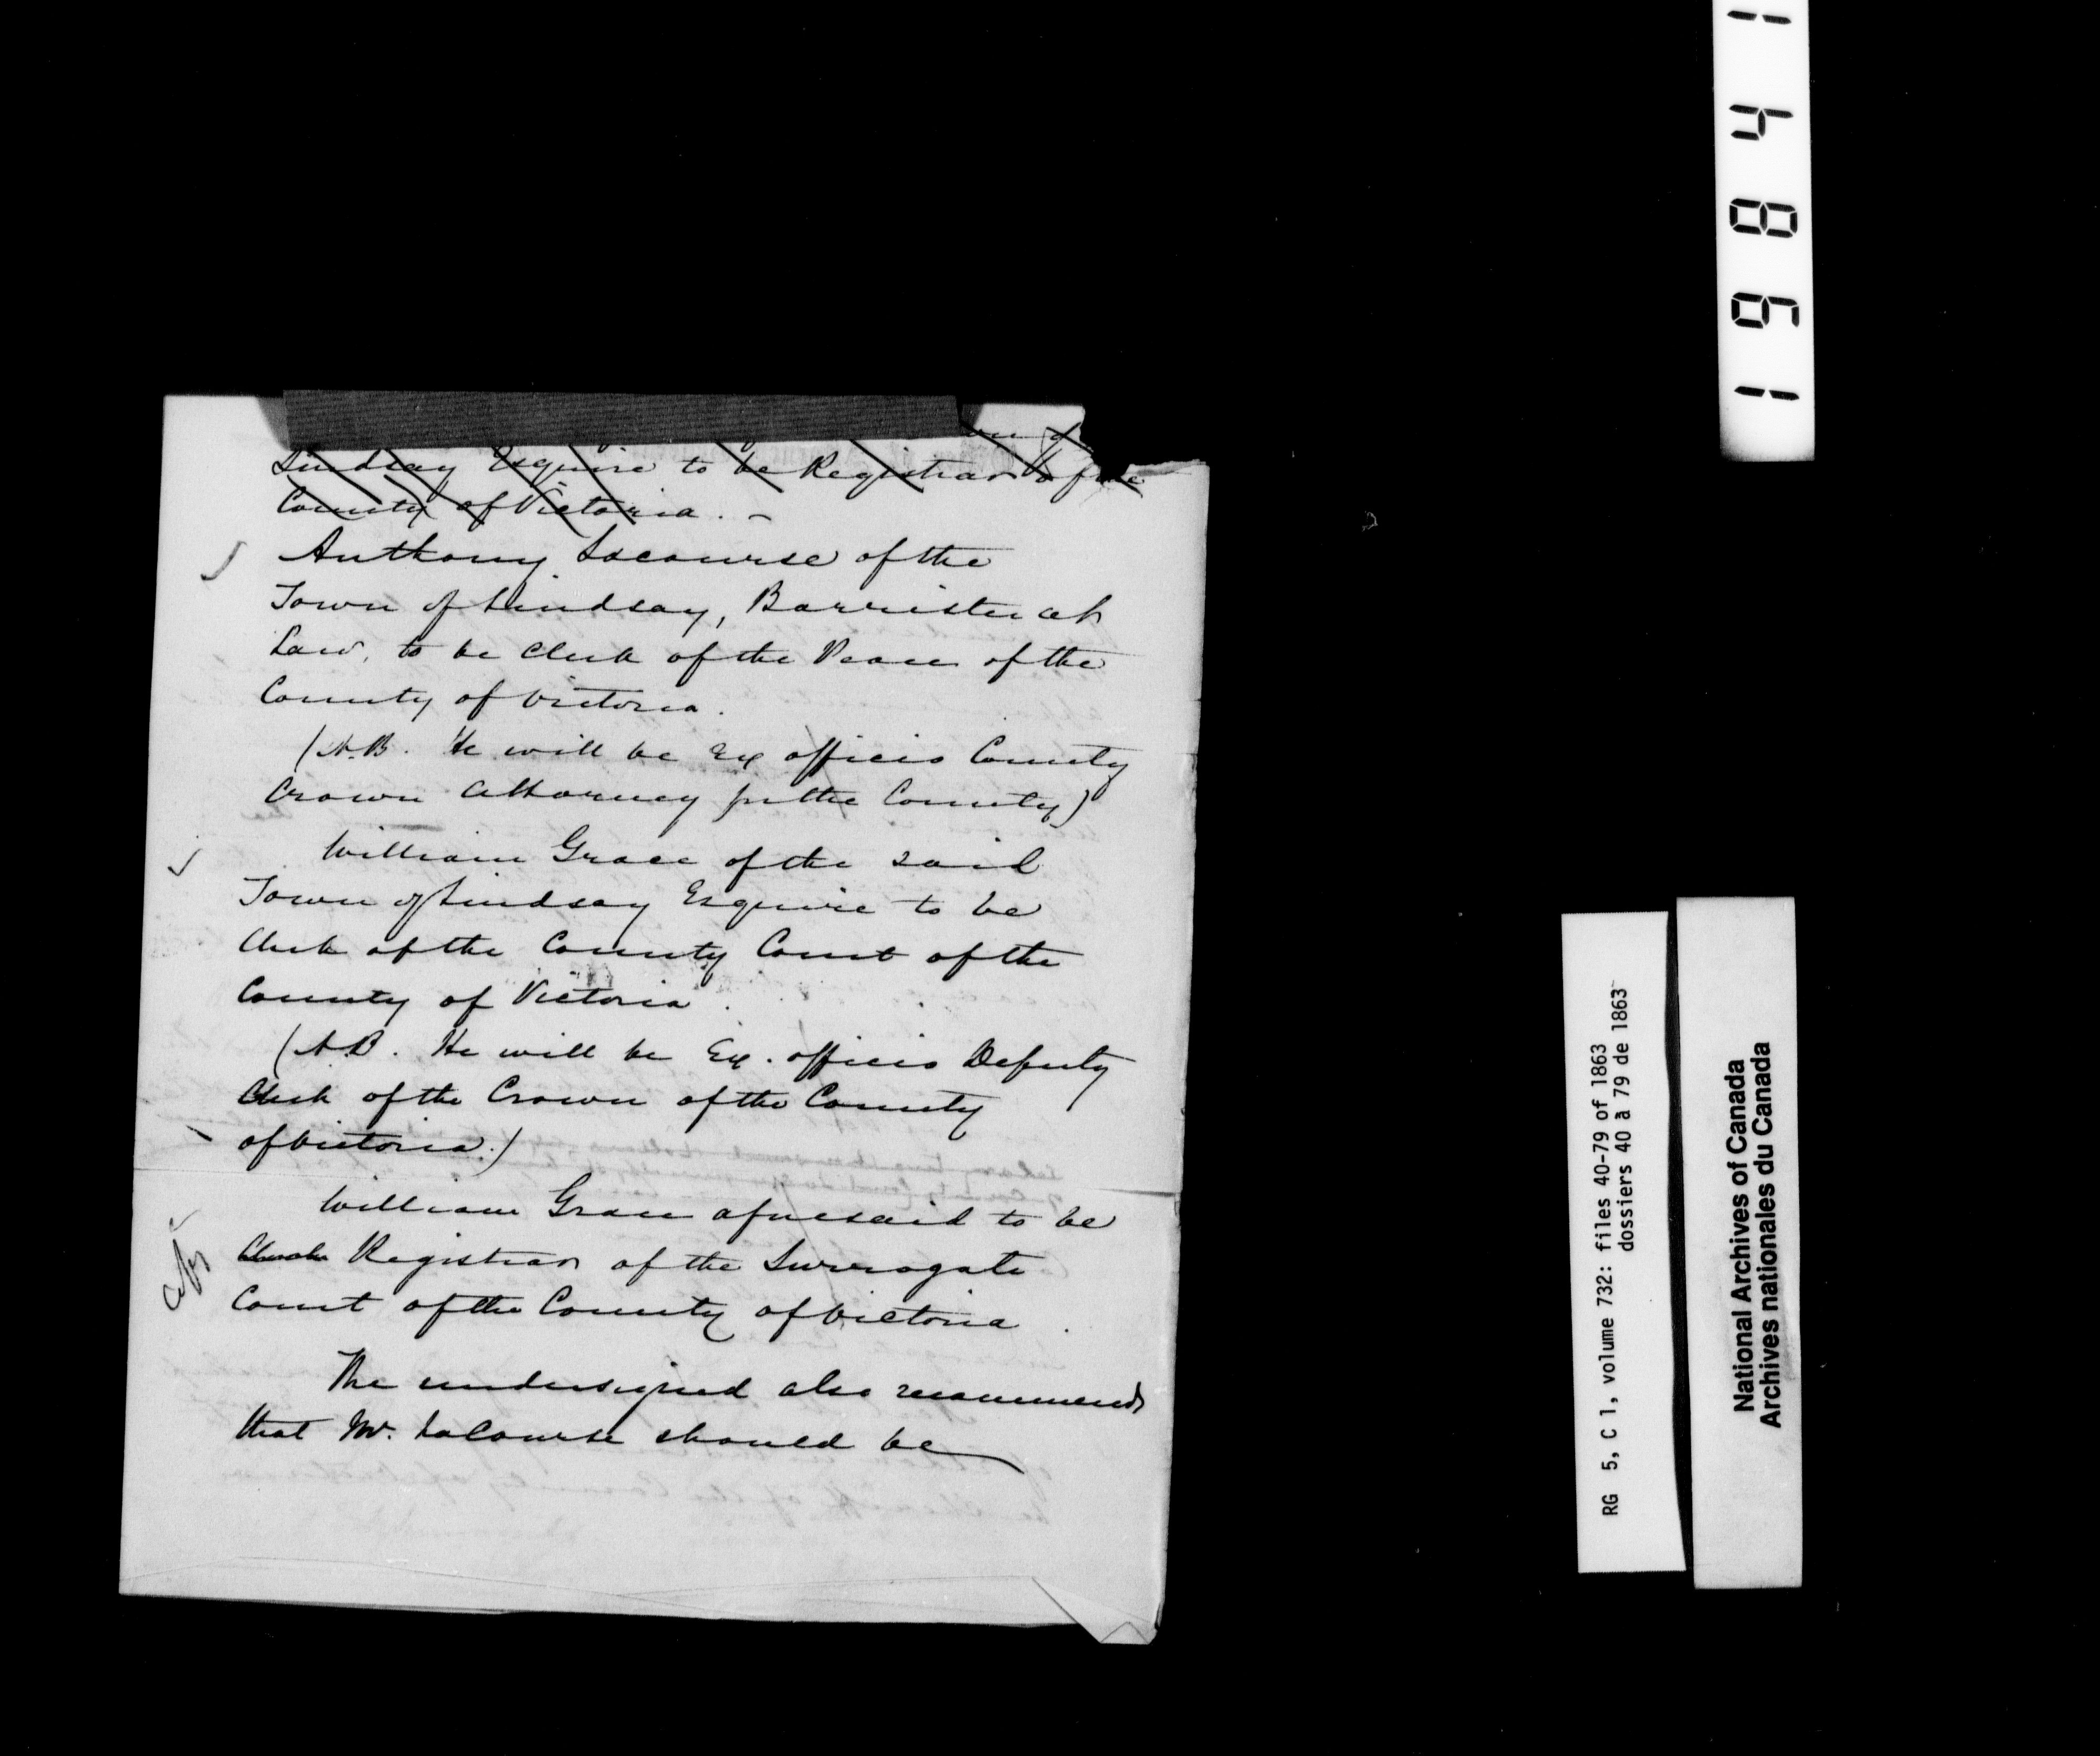 Lindsay Esquire to be Registrar of the
County of Victoria. –
Anthony Lacourse of the
Town of Lindsay, Barrister at
Law, to be Clerk of the Peace of the
County of Victoria.
(N.B. He will be Ex officio County
Crown Attorney for the County)
William Grace of the said
Town of Lindsay Esquire to be
Clerk of the County Court of the
County of Victoria.
(N.B. He will be Ex. officio Deputy
Clerk of the Crown of the County
of Victoria.)
William Grace aforesaid to be
Registrar of the Surrogate
Court of the County of Victoria.
The undersigned also recommends
that Mr. LaCourse should be
19841
RG 5, C 1, volume 732: files 40-79 of 1863
dossiers 40 à 79 de 1863
National Archives of Canada
Archives nationales du Canada